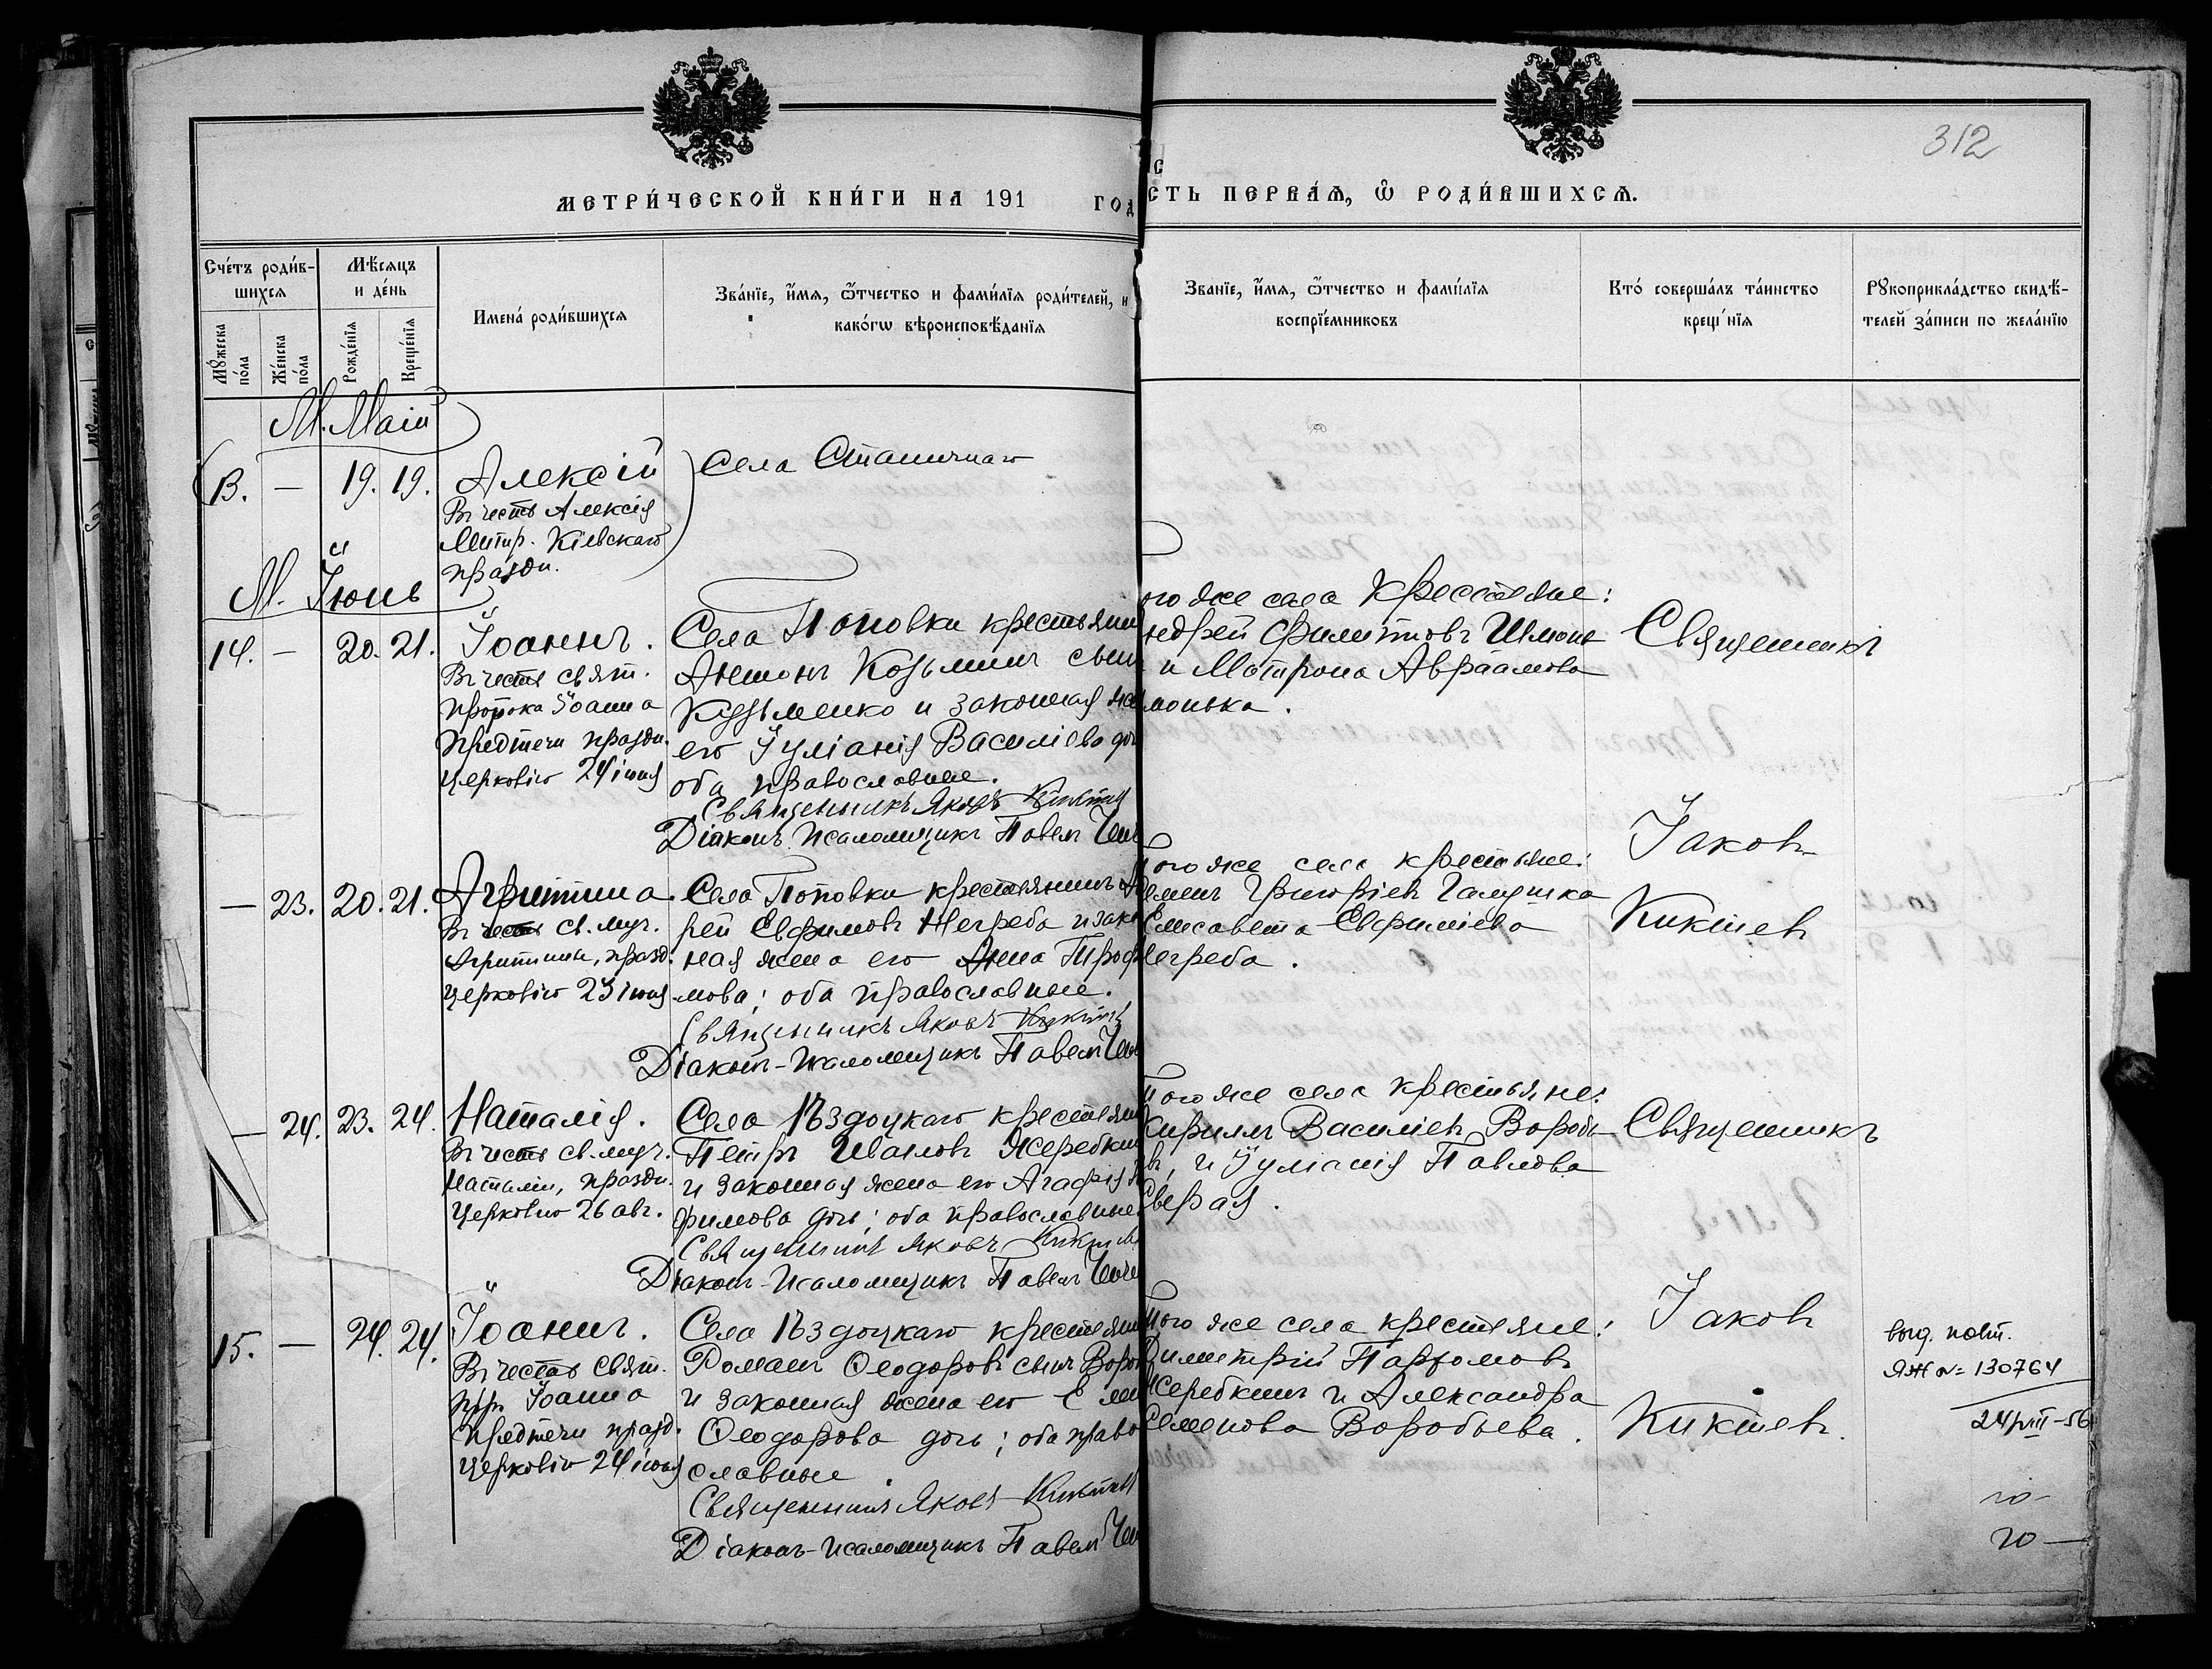 312
МЕТРИ́ЧЕСКОЙ КНИ́ГИ НА 191 ГОД
СТЬ ПЕРВА́Ѧ, Ѽ РОДИ́ВШИХСѦ.
Счéтъ роди́в-
шихсѧ
Мꙋ́жеска
по́ла
Жéнска
по́ла
Мѣ́сѧцъ
и дéнь
Рождéнїѧ
Крещéнїѧ
Именá роди́вшихсѧ
Звáнїе, и҆́мѧ, ѻ҆́тчество и фами́лїѧ роди́телей, и
како́гѡ вѣроисповѣ́данїѧ
Звáнїе, и҆́мѧ, ѻ҆́тчество и фами́лїѧ
воспрїéмниковъ
Кто́ совершáлъ тáинство
крещéнїѧ
Рꙋкоприклáдство свидѣ́-
телей зáписи по желáнїю
М. Маій
13. — 19. 19. Алексій
Въ честь Алексія
Митр. Кіевскаго
праздн.
Села Станичнаго
М. Іюнь
14. — 20. 21. Іоаннъ.
Въ честь свят.
пророка Іоанна
Предтечи праздн.
церковію 24 іюня
Села Поповки крестьянин
Антонъ Козьминъ сын
Кузьменко и законная же
его Іуліанія Василіева доч
оба православные.
Священникъ Яковъ
Діаконъ Псаломщикъ Павелъ
ого же села крестьяне:
ндрей Филиповъ Шмоне
и Матрона Авраамова
монька.
Священникъ
Іаковъ
Кикшевъ
— 23. 20. 21. Агрипина.
Въ честь св. муч.
Агрипины, празд.
церковію 23 іюня
Села Поповки крестьянинъ А
рей Евфимовъ Негреба и зако
ная жена его Анна Троф
мова; оба православные.
Священникъ Яковъ
Діаконъ-Псаломщикъ Павелъ
того же села крестьяне:
Григоріевъ Галушка
Елисавета Евфиміева
Негреба.
— 24. 23. 24. Наталія.
Въ честь св. муч.
Наталіи, праздн.
церковію 26 авг.
Села Ѣздоцкаго крестьян
Петръ Ивановъ Жеребкин
и законная жена его Агафія
фимова дочь; оба православные.
Священникъ Яковъ Кикшев
Діаконъ-Псаломщикъ Павелъ
того же села крестьяне:
Кириллъ Василіевъ Воробь
въ, и Іуліанія Павлова
Сверая.
Священникъ
Іаковъ
Кикшевъ.
15. — 24. 24. Іоаннъ.
Въ честь свят.
прр. Іоанна
Предтечи празд.
церковію 24 іюня
Села Ѣздоцкаго крестьян
Романъ Ѳеодоровъ сынъ Вороб
и законная жена его
Ѳеодорова дочь; оба право
славные.
Священникъ Яковъ
Діаконъ-Псаломщикъ Павелъ
того же села крестьяне:
Димитрій Парѳомовъ
Жеребкинъ и Александра
Семенова Воробьева.
выд. повт.
ЯЖ № 130764
24/VIII-56
20 —